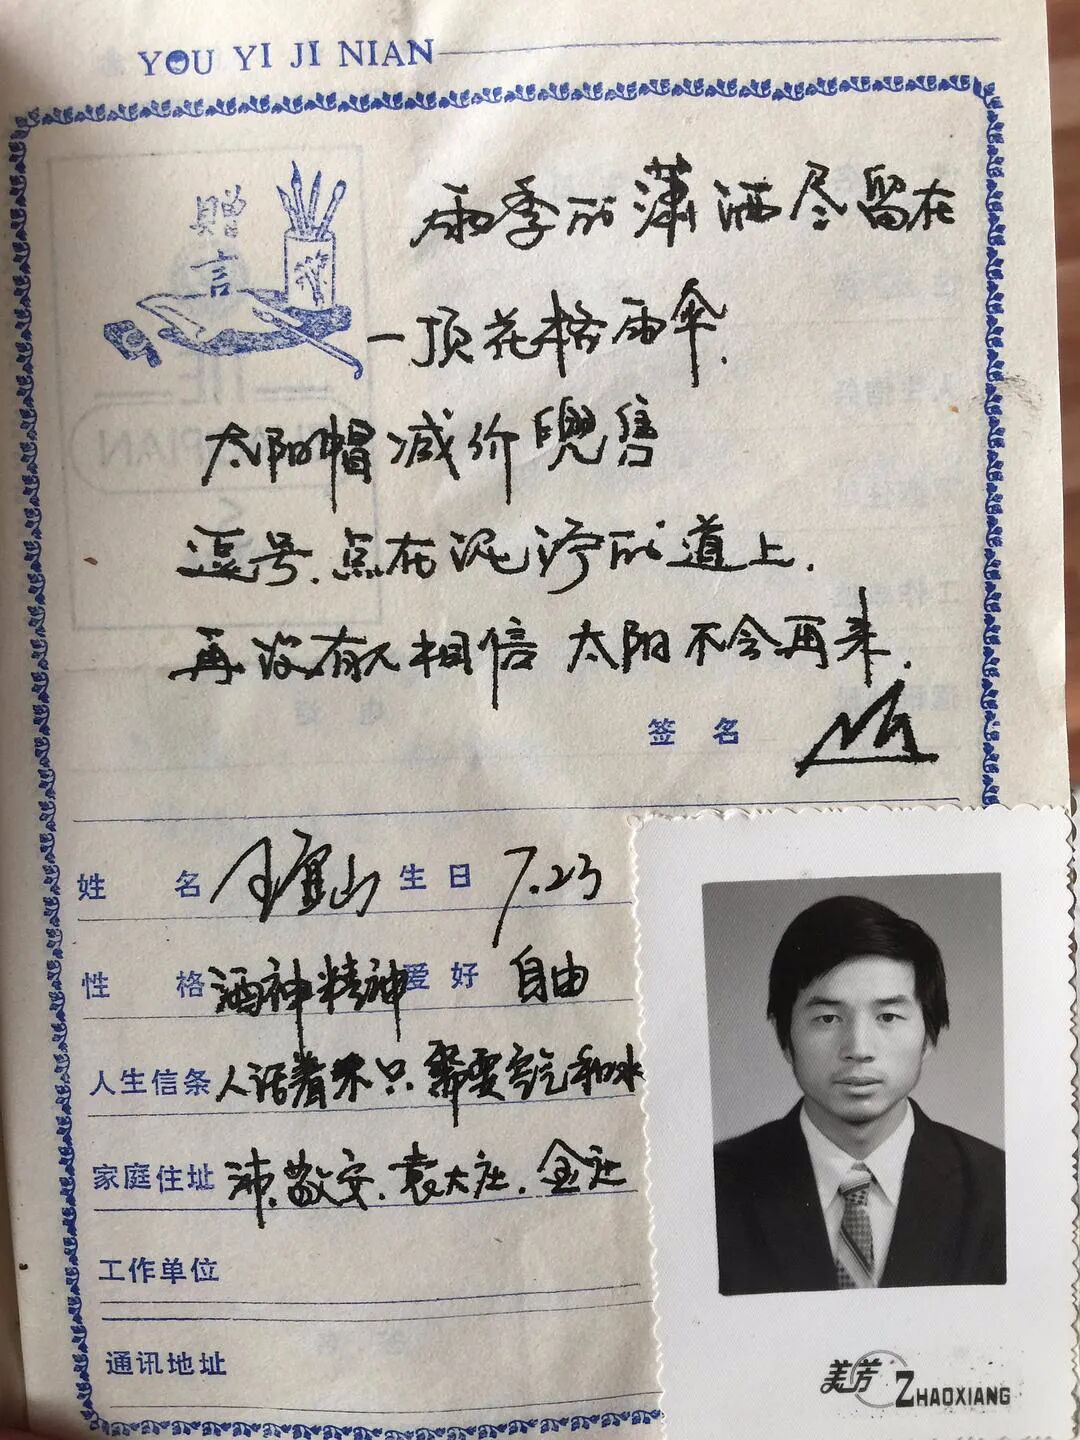 YOU YI JI NIAN
赠言
雨季的潇洒尽留在
一顶花格雨伞.
太阳帽减价兜售
逗号.点在泥泞的道上.
再没有人相信 太阳不会再来.
签名
姓名 山 生日 7.23
性格 酒神精神 爱好 自由
人生信条 人活着果只.需要空气和水
家庭住址 沛.敬安.袁大庄.金庄
工作单位
通讯地址
美芳 ZHAOXIANG